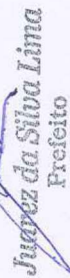 Juarez da Silva Lima
Prefeito